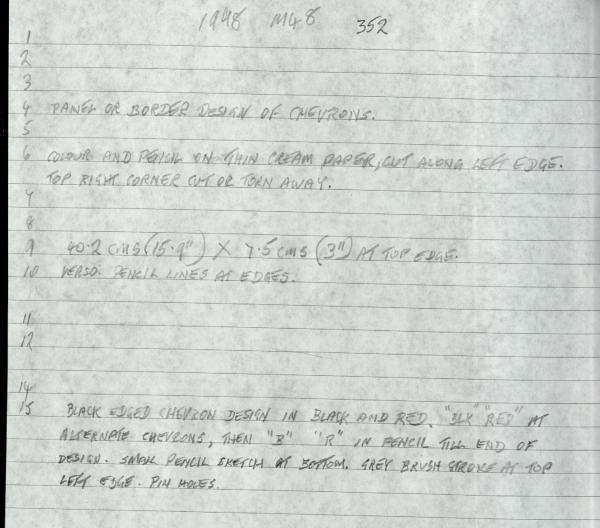 1948 M48 352
1
2
3
4 PANEL OR BORDER DESIGN OF CHEVRONS.
5
6 COLOUR AND PENCIL ON THIN CREAM PAPER, CUT ALONG LEFT EDGE.
TOP RIGHT CORNER CUT OR TORN AWAY.
7
8
9 40.2 cms (15.9") X 7.5 cms (3") AT TOP EDGE.
10 VERSO: PENCIL LINES AT EDGES.
11
12
14
15 BLACK EDGED CHEVRON DESIGN IN BLACK AND RED. "BLK" "RED" AT
ALTERNATE CHEVRONS, THEN "B" "R" IN PENCIL TILL END OF
DESIGN. SMALL PENCIL SKETCH AT BOTTOM. GREY BRUSH STROKE AT TOP
LEFT EDGE. PIN HOLES.